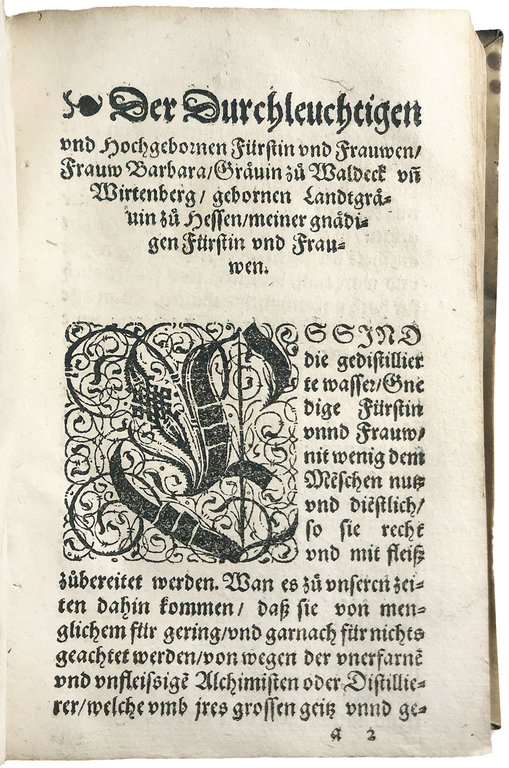 Der Durchleuchtigen
vnd Hochgebornen Fürstin vnd Frauwen/
Frauw Barbara/Gråuin zů Waldeck vñ
Wirtenberg/ gebornen Landtgrå⸗
uin zů Hessen/meiner gnådi⸗
gen Fürstin vnd Frau⸗
wen.
ES SIND
die gedistillier
te wasser/Gne
dige Fürstin
vnnd Frauw/
nit wenig dem
Mēschen nutz
vnd diēstlich/
so sie recht
vnd mit fleiß
zůbereitet werden. Wan es zů vnseren zei⸗
ten dahin kommen/ daß sie von men⸗
glichem für gering/vnd garnach für nichts
geachtet werden/von wegen der vnerfarnē
vnd vnfleissigē Alchimisten oder Distillie⸗
rer/welche vmb jres grossen geitz vnnd ge⸗
a 2